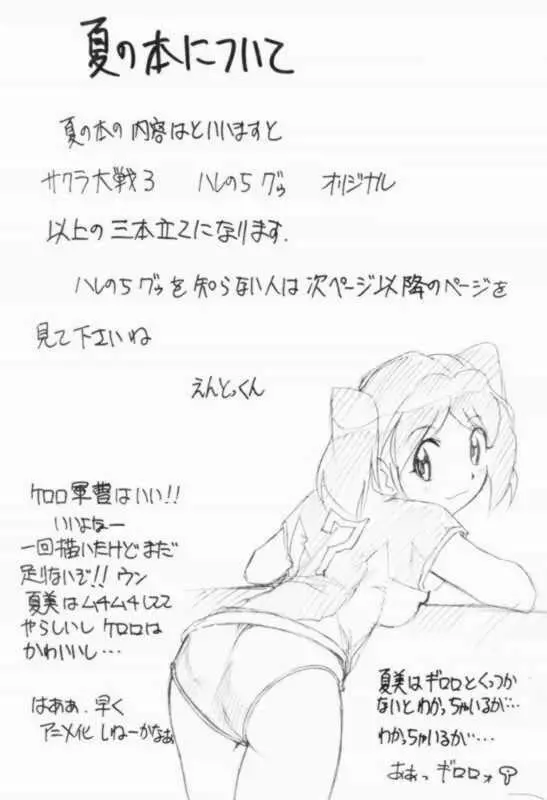 夏の本について
夏の本の内容はといいますと
サクラ大戦3 ハレのちグゥ オリジナル
以上の三本立てになります.
ハレのちグゥを知らない人は次ページ以降のページを
見て下さいね
えんとっくん
ケロロ軍曹はいい!!
いいよなー
一回描いたけどまだ
足りないぞ!! ウン
夏美はムチムチしてて
やらしいし ケロロは
かわいいし…
はぁぁ.早く
アニメ化しねーかなぁ
夏美はギロロとくっつか
ないとわかっちゃいるが…
わかっちゃいるが…
ああっ ギロロォ